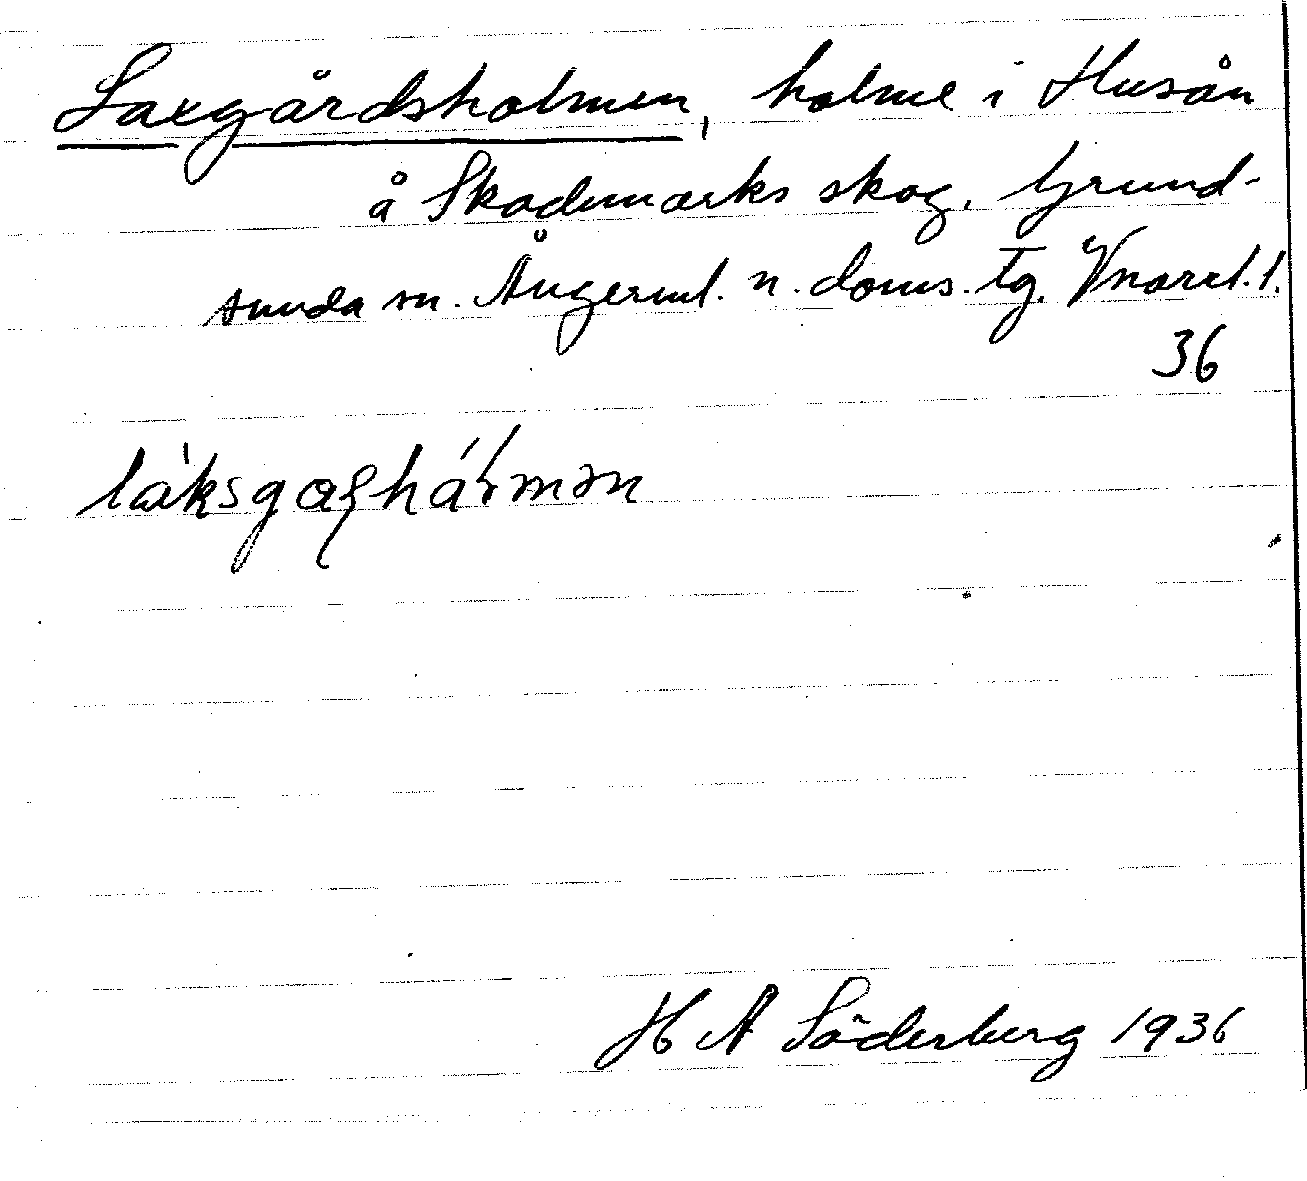 Laxgårdsholmen, holme i Husån
å Skademarks skog, Grund-
sunda sn. Ångerml. n. doms. tg. Vnorrl. l.
36
H A Söderberg 1936